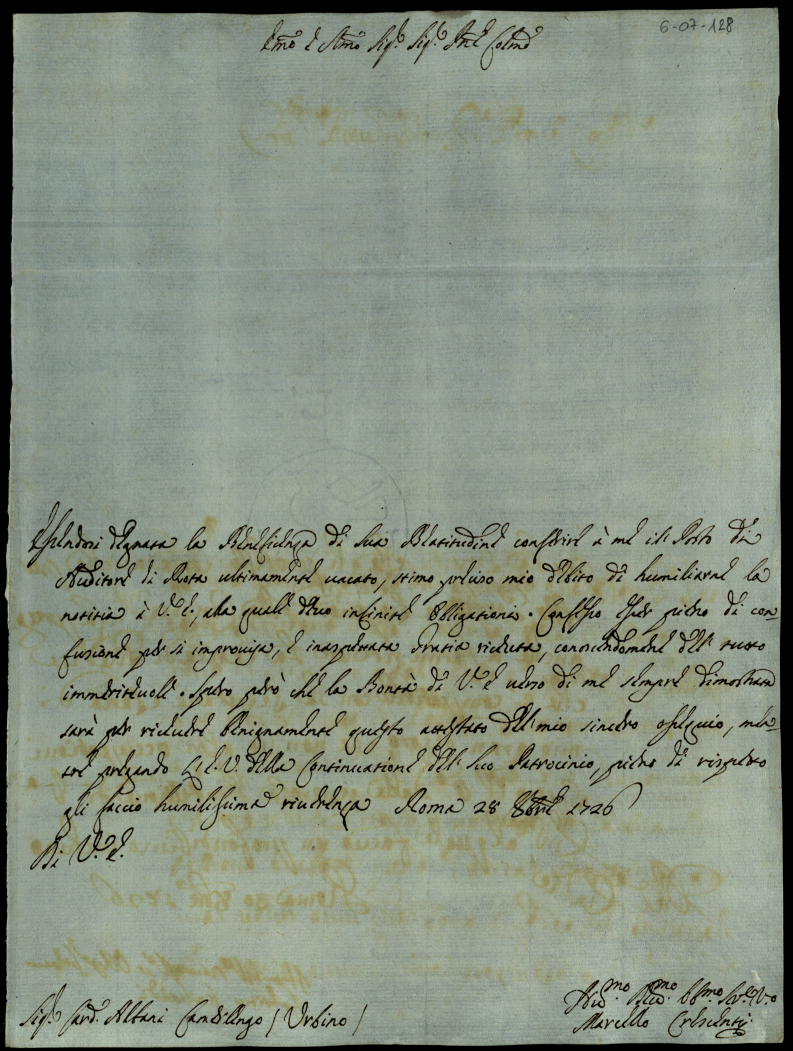 6-07-128
Emo e Rmo Sigr. Sigr. Pne Colmo
Essendosi degnata la Beneficenza di Sua Beatitudine conferire à me il Posto di
Auditore di Rota ultimamente vacato, stimo preciso mio debito di humiliarne la
notitia à V.ra E., alla quale devo infinite obligationi. Confesso esser pieno di con=
fusione per sì improvisa, e inaspettata Gratia riceuta, conoscendomene del tutto
immeriteuole. Spero però che la Bontà di V.ra E. uerso di me sempre dimostrata
sarà per riceuere benignamente questo attestato del mio sincero ossequio, men=
tre pregando l'E.V. della Continuatione del Suo Patrocinio, pieno di rispetto
gli faccio humilissima riuerenza Roma 28 8bre 1726
Di V.ra E.
Sigr. Card. Albani Camerlengo / Urbino /
Humo Devmo Obbmo Servre Vo
Marcello Crescenzi